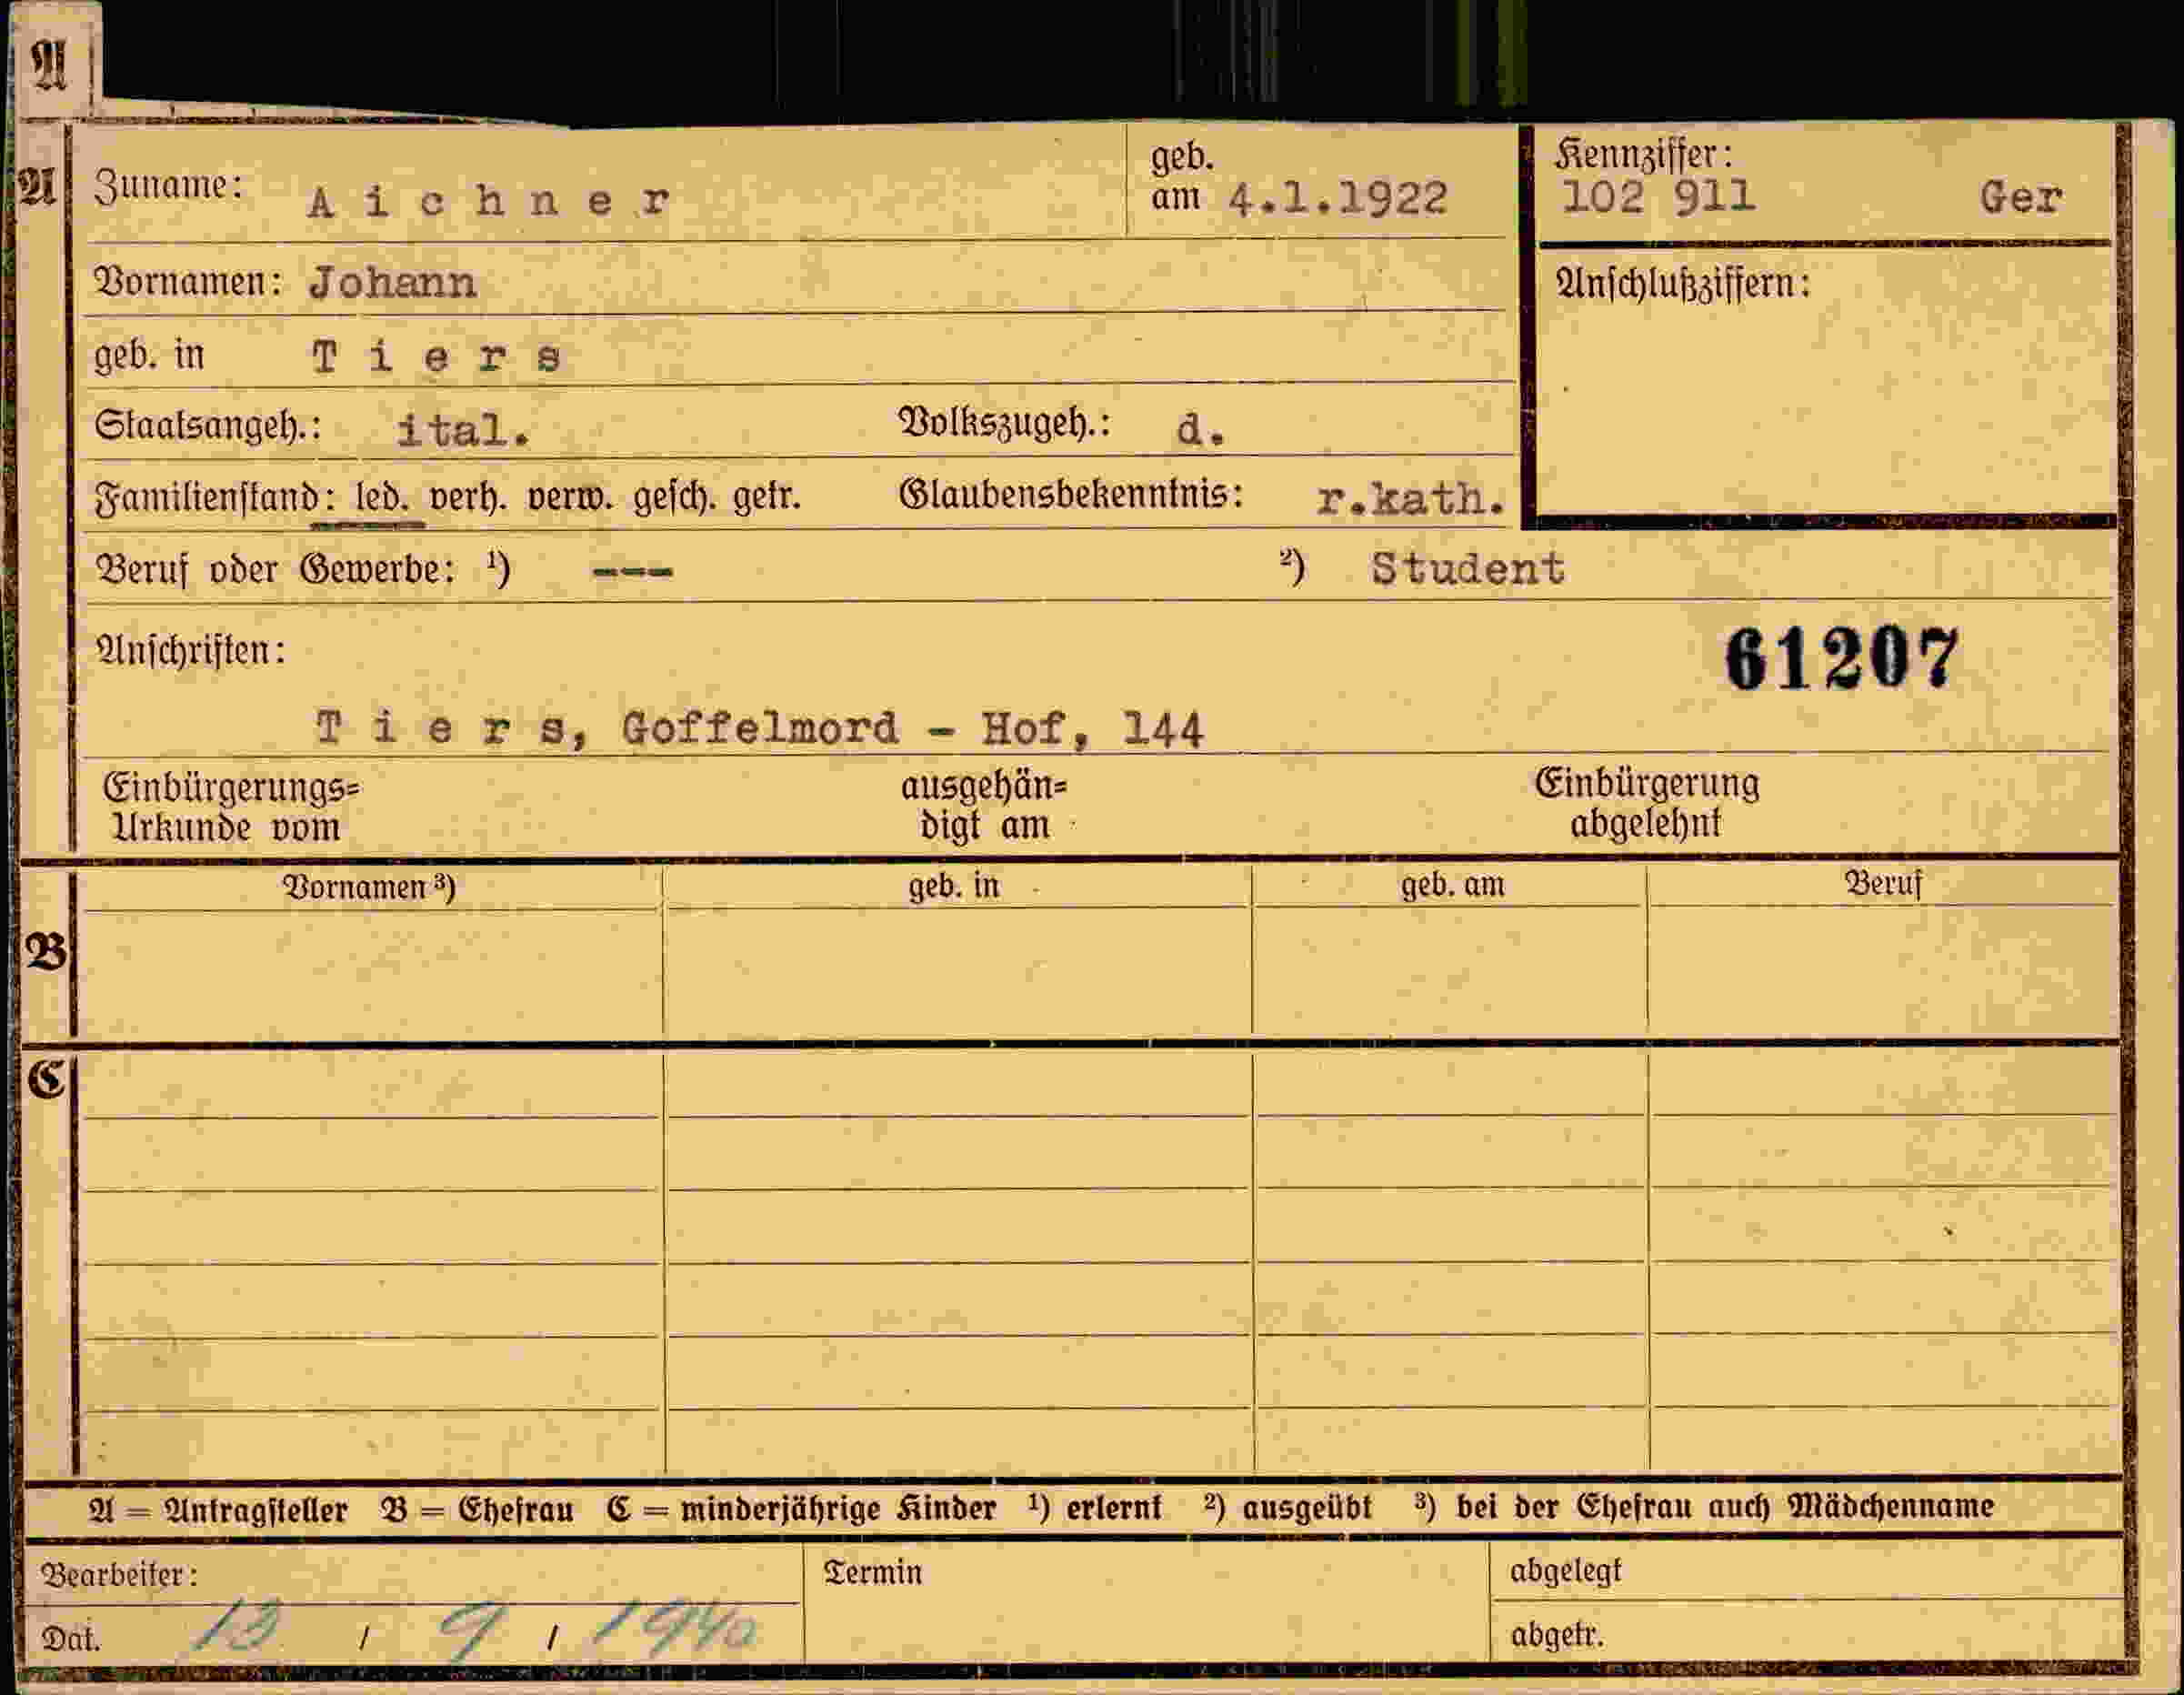 A
A Zuname: Aichner geb. am 4.1.1922 Kennziffer: 102 911 Ger
Vornamen: Johann Anschlußziffern:
geb. in Tiers
Staatsangeh.: ital. Volkszugeh.: d.
Familienstand: led. verh. verw. gesch. getr. Glaubensbekenntnis: r.kath.
Beruf oder Gewerbe: ¹) --- ²) Student
Anschriften: 61207
Tiers, Goffelmord - Hof, 144
Einbürgerungs= ausgehän= Einbürgerung
Urkunde vom digt am abgelehnt
Vornamen ³) geb. in geb. am Beruf
B
C
A = Antragsteller B = Ehefrau C = minderjährige Kinder ¹) erlernt ²) ausgeübt ³) bei der Ehefrau auch Mädchenname
Bearbeiter: Termin abgelegt
Dat. 13 / 9 / 1940 abgetr.